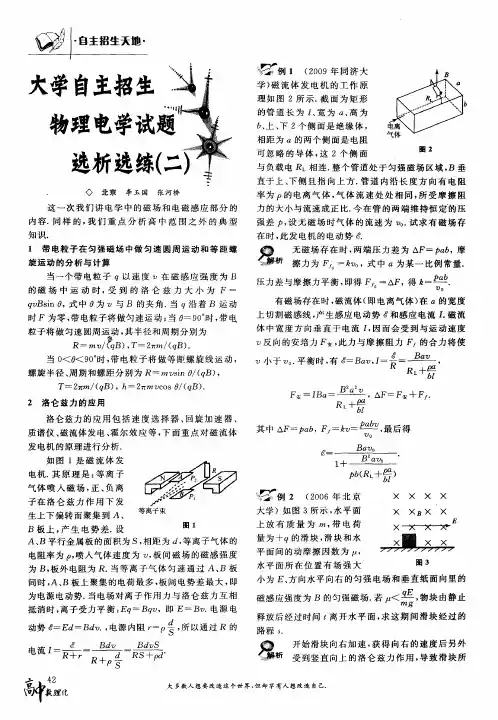 ·自主招生天地·
大学自主招生
物理电学试题
选析选练(二)
◇ 北京 李玉国 张河桥
这一次我们讲电学中的磁场和电磁感应部分的
内容.同样的,我们重点分析高中范围之外的典型
知识.
1 带电粒子在匀强磁场中做匀速圆周运动和等距螺
旋运动的分析与计算
当一个带电粒子 q 以速度 v 在磁感应强度为 B
的磁场中运动时,受到的洛伦兹力大小为 F=
qvBsin θ,式中 θ 为 v 与 B 的夹角.当 q 沿着 B 运动
时 F 为零,带电粒子将做匀速运动;当 θ=90°时,带电
粒子将做匀速圆周运动,其半径和周期分别为
R=mv/(qB),T=2πm/(qB).
当 0<θ<90°时,带电粒子将做等距螺旋线运动,
螺旋半径、周期和螺距分别为 R=mvsin θ/(qB),
T=2πm/(qB),h=2πmvcos θ/(qB).
2 洛伦兹力的应用
洛伦兹力的应用包括速度选择器、回旋加速器、
质谱仪、磁流体发电、霍尔效应等,下面重点对磁流体
发电机的原理进行分析.
如图 1 是磁流体发
电机.其原理是:等离子
气体喷入磁场,正、负离
子在洛伦兹力作用下发
生上下偏转而聚集到 A、
B 板上,产生电势差.设
N
S
R
等离子束
图 1
A、B 平行金属板的面积为 S,相距为 d,等离子气体的
电阻率为 ρ,喷入气体速度为 v,板间磁场的磁感强度
为 B,板外电阻为 R.当等离子气体匀速通过 A、B 板
间时,A、B 板上聚集的电荷最多,板间电势差最大,即
为电源电动势.当电场对离子作用力与洛伦兹力互相
抵消时,离子受力平衡,Eq=Bqv,即 E=Bv.电源电
动势 ℰ=Ed=Bdv.,电源内阻 r=ρ d/S,所以通过 R 的
电流 I=ℰ/(R+r)=Bdv/(R+ρ d/S)=BdvS/(RS+ρd).
例 1 (2009 年同济大
学)磁流体发电机的工作原
理如图 2 所示.截面为矩形
的管道长为 l、宽为 a、高为
b、上、下 2 个侧面是绝缘体,
相距为 a 的两个侧面是电阻
可忽略的导体,这 2 个侧面
B
a
R_L
b
电离
气体
图 2
与负载电 R_L 相连.整个管道处于匀强磁场区域,B 垂
直于上、下侧且指向上方.管道内沿长度方向有电阻
率为 ρ 的电离气体,气体流速处处相同,所受摩擦阻
力的大小与流速成正比.今在管的两端维持恒定的压
强差 p,设无磁场时气体的流速为 v₀.试求有磁场存
在时,此发电机的电动势 ℰ.
解析 无磁场存在时,两端压力差为 ΔF=pab,摩
擦力为 F_f₀=kv₀,式中 a 为某一比例常量.
压力差与摩擦力平衡,即得 F_f₀=ΔF,得 k=pab/v₀.
有磁场存在时,磁流体(即电离气体)在 a 的宽度
上切割磁感线,产生感应电动势 ℰ 和感应电流 I.磁流
体中宽度方向垂直于电流 I,因而会受到与运动速度
v 反向的安培力 F安,此力与摩擦阻力 F_f 的合力将使
v 小于 v₀.平衡时,有 ℰ=Bav,I=ℰ/R=Bav/(R_L+ρa/(bl)),
F安=IBa=B²a²v/(R_L+ρa/(bl)),ΔF=F安+F_f.
其中 ΔF=pab,F_f=kv=pabv/v₀,最后得
ℰ=Bav₀/(1+B²av₀/(pb(R_L+ρa/(bl)))).
例 2 (2006 年北京
大学)如图 3 所示,水平面
上放有质量为 m,带电荷
量为+q 的滑块,滑块和水
平面间的动摩擦因数为 μ,
水平面所在位置有场强大
× × × ×
× × B × ×
E
× × ×
图 3
小为 E、方向水平向右的匀强电场和垂直纸面向里的
磁感应强度为 B 的匀强磁场.若 μ<qE/mg,物块由静止
释放后经过时间 t 离开水平面,求这期间滑块经过的
路程 s.
解析 开始滑块向右加速,获得向右的速度后另外
受到竖直向上的洛伦兹力作用,导致滑块所
42
高中数理化
大多数人想要改造这个世界,但却罕有人想改造自己.